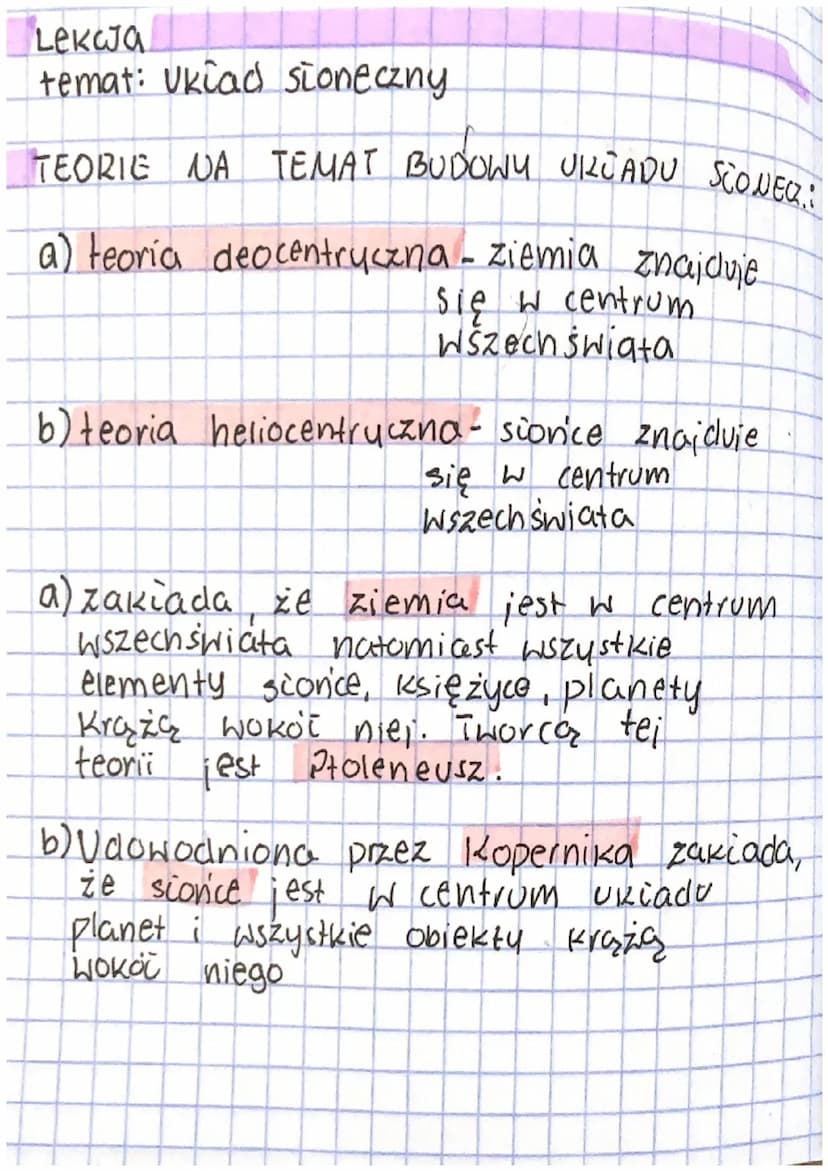 Lekcja
temat: Układ słoneczny
TEORIE NA TEMAT BUDOWY UKŁADU SŁONECZ.:
a) teoria deocentryczna - ziemia znajduje
się w centrum
wszechświata
b) teoria heliocentryczna - słońce znajduje
się w centrum
wszechświata
a) zakłada, że ziemia jest w centrum
wszechświata natomiast wszystkie
elementy słońce, księżyce, planety
krążą wokół niej. Tworcą tej
teorii jest Ptoleneusz.
b) Udowodniona przez Kopernika zakłada,
że słońce jest w centrum układu
planet i wszystkie obiekty krążą
wokół niego